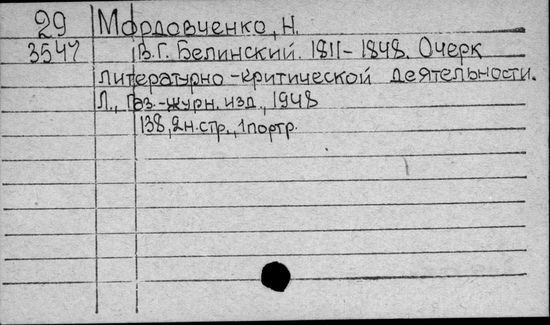 29 Мордовченко, Н.
3547 В.Г. Белинский. 1811-1848. Очерк
литературно-критической деятельности.
Л., Газ.-журн. изд., 1948
138, 2н.стр., 1 портр.